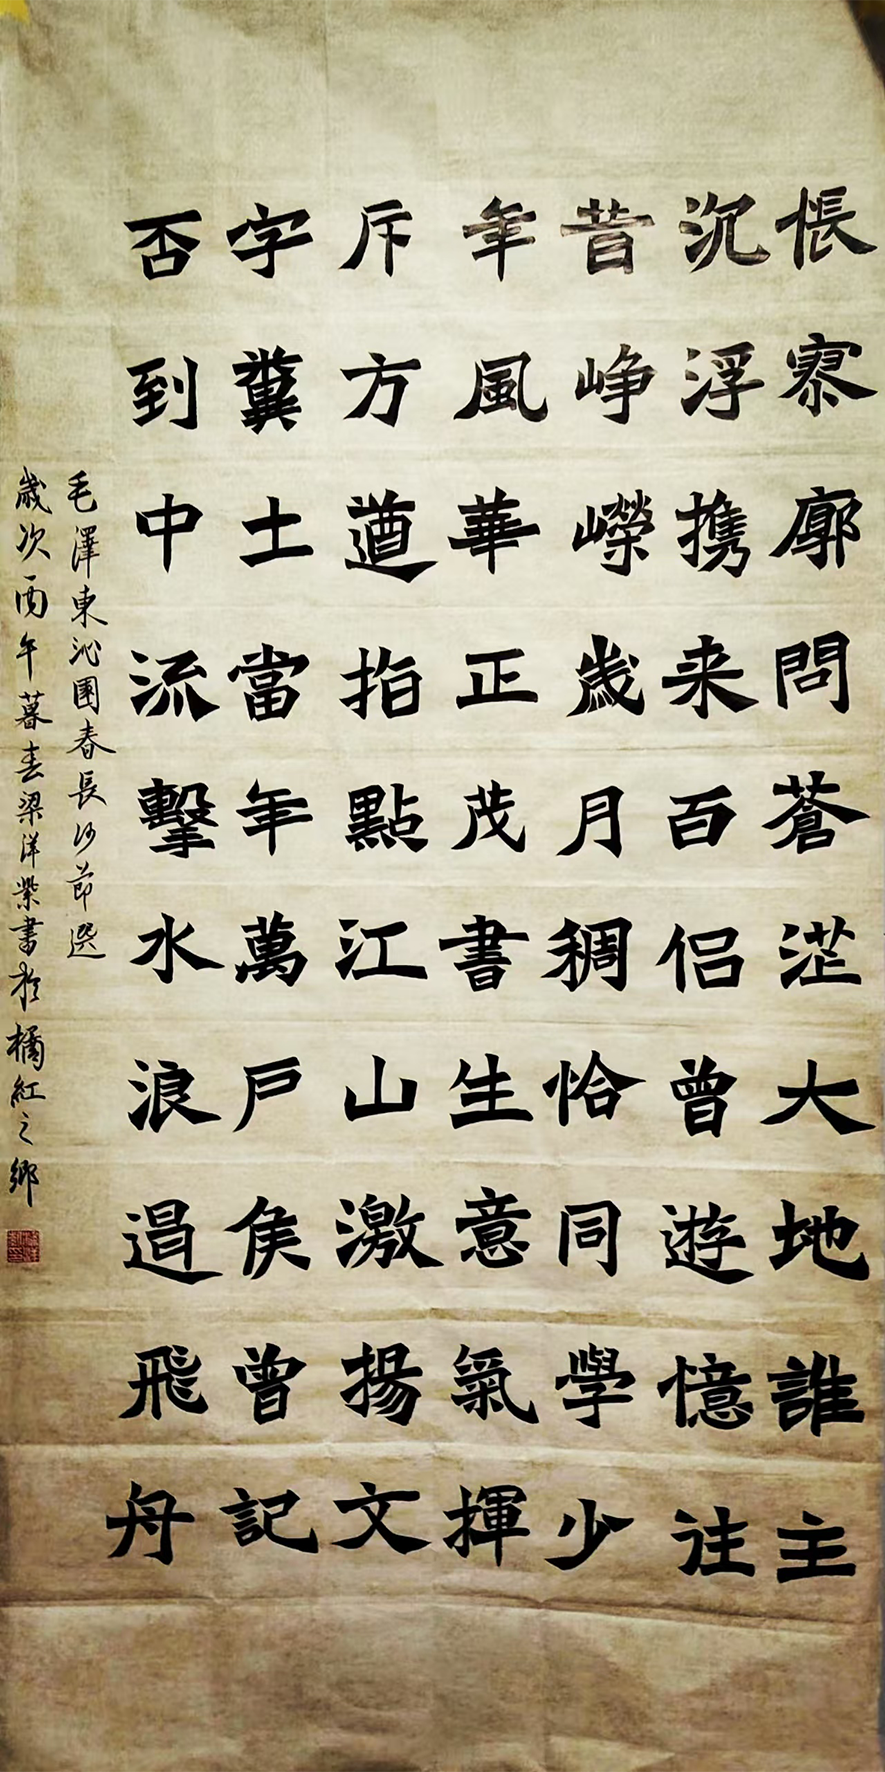 悵寥廓問蒼茫大地誰主
沉浮携来百侣曾遊憶往
昔峥嶸歲月稠恰同學少
年風華正茂書生意氣揮
斥方遒指點江山激揚文
字糞土當年萬户侯曾記
否到中流擊水浪遏飛舟
毛澤東沁園春長沙節選
歲次丙午暮春梁洋書於橘紅之鄉